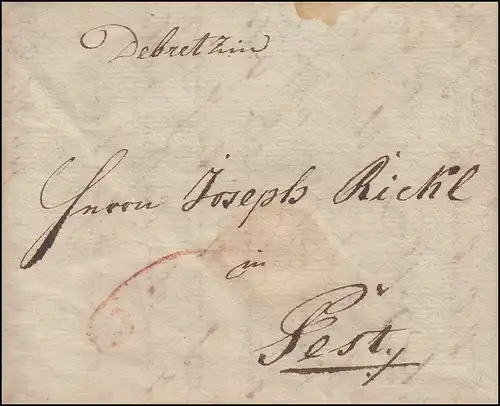 Debretzin
Herrn Joseph Rickl
in
Pest